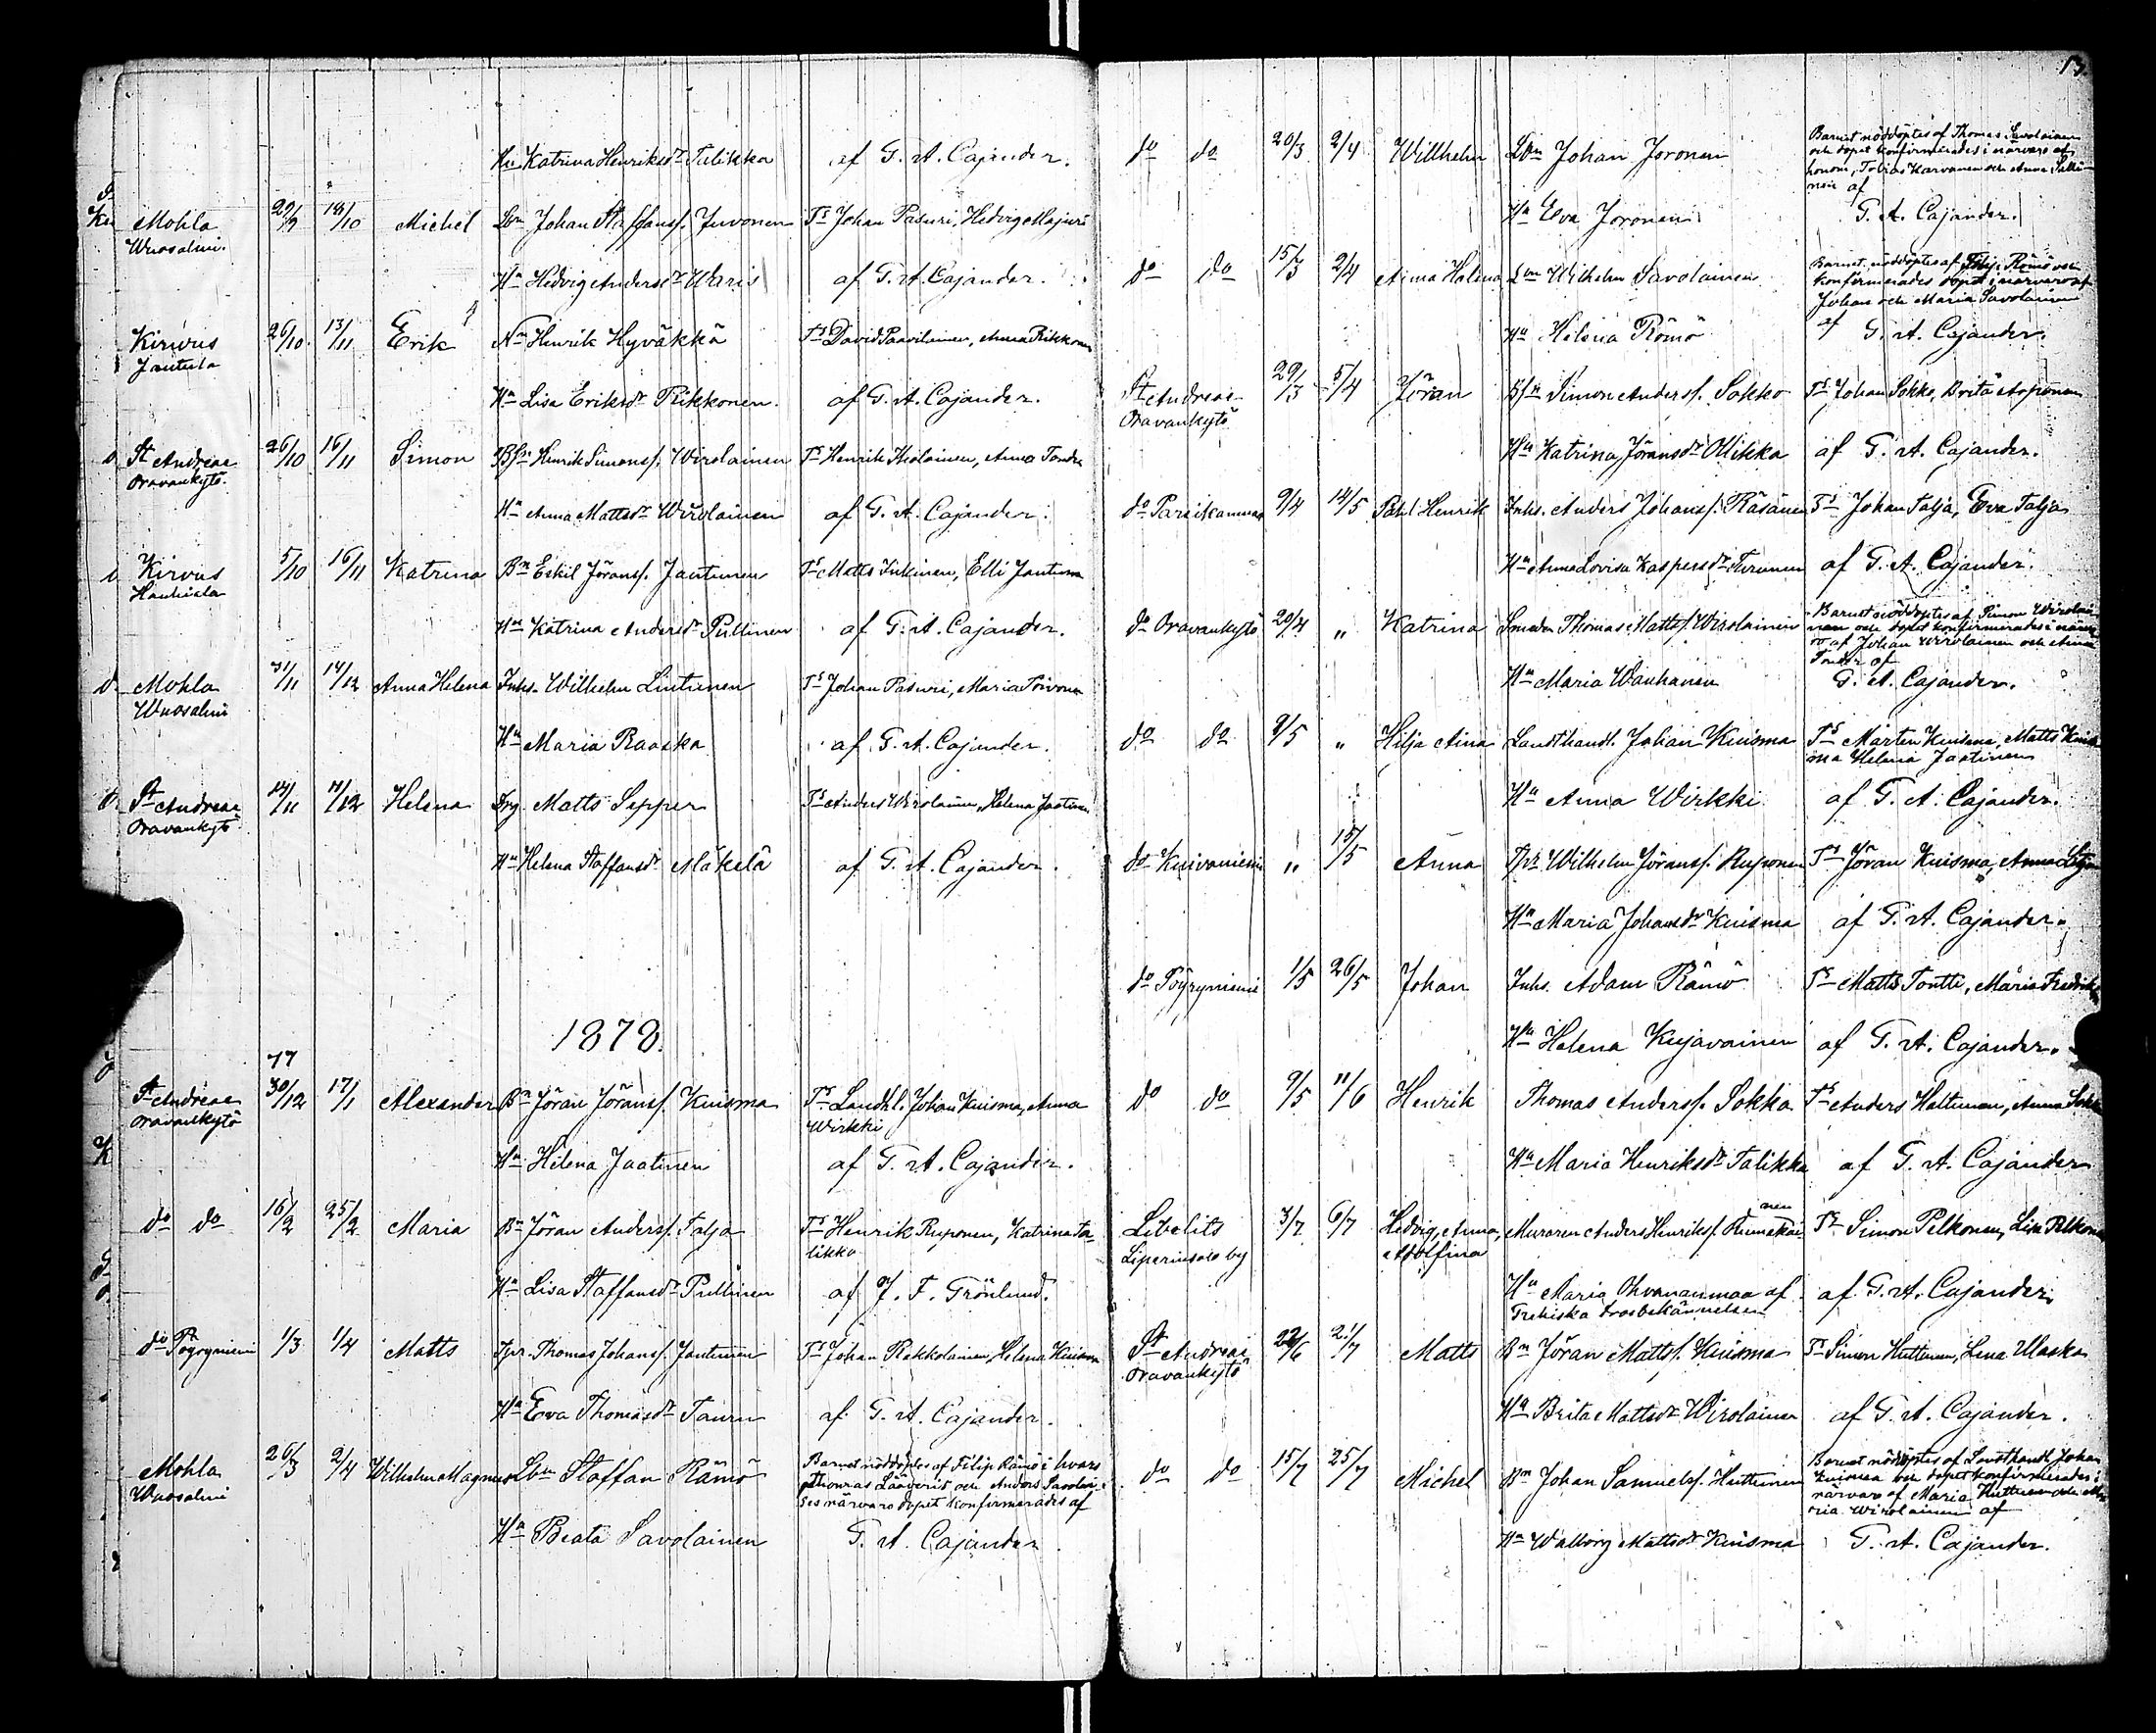 Hu Katrina Henriksdr Talikka af G. A. Cajander.
Mohla 29/9 18/10 Michel Lbn Johan Staffansf. Juvonen Ts Johan Pasuri, Hedvig Majuri
Wuosalmi
Hu Hedvig Andersdr Waris af G. A. Cajander.
Kirvus 26/10 13/11 Erik Nm Henrik Hyväkkä Ts David Paavilainen, Anna Rikkonen
Jantula
Hu Lisa Eriksdr Rikkonen. af G. A. Cajander.
St Andreae 26/10 16/11 Simon Bsn Henrik Simonsf. Wirolainen Ts Henrik Tholainen, Anna Tondr
Oravankytö
Hu Anna Mattsdr Wirolainen af G. A. Cajander.
Kirvus 5/10 16/11 Katrina Bn Eskil Jöransf. Jantunen Ts Matts Inkinen, Elli Jantunen
Hu Katrina Andersdr Pullinen af G. A. Cajander.
Mohla 11 14/12 Anna Helena Inhs. Wilhelm Lintunen Ts Johan Pasuri, Maria Toivonen
Wuosalmi
Hu Maria Raaska af G. A. Cajander.
St Andreae 11 12 Helena Drg. Matts Sepper Ts Anders Wirolainen, Helena Jaatinen
Oravankytö
Hu Helena Staffansdr Mäkelä af G. A. Cajander.
1878.
77
St Andreae 30/12 17/1 Alexander Bn Jöran Jöransf. Kuisma Ts Landhl. Johan Kuisma, Anna
Oravankytö Wirkki
Hu Helena Jaatinen af G. A. Cajander.
do do 16/2 25/2 Maria Bn Jöran Andersf. Talja Ts Henrik Ruponen, Katrina Ta-
likka
Hu Lisa Staffansdr Pullinen af J. F. Grönlund.
do Pöyryniemi 1/3 1/4 Matts Tpr. Thomas Johansf. Jantunen Ts Johan Rekkolainen, Helena Kuisma
Hu Eva Thomasdr Tauru af G. A. Cajander.
Mohla 26/3 2/4 Wilhelm Magnus Lbn Staffan Rämö Barnet nöddöptes af Filip Rämö i hvars
Wuosalmi och Anders Savolai-
ses närvaro dopet konfirmerades af
Hu Beata Savolainen G. A. Cajander
13.
do do 20/3 2/4 Willhelm Lbn Johan Joronen Barnet nöddöptes af Thomas Savolainen
och dopet konfirmerades i närvaro af
honom, Tobias Karvanen och Anna Salli-
nen af
Hu Eva Joronen G. A. Cajander.
do do 15/3 2/4 Anna Helena Lbn Wilhelm Savolainen Barnet nöddöptes af Filip Rämö och
konfirmerades dopet i närvaro af
Johan och Maria Savolainen
Hu Helena Rämö af G. A. Cajander.
St Andreae 29/3 5/4 Jöran Bsn Simon Andersf. Sokka Ts Johan Sokka, Brita Asponen
Oravankytö
Hu Katrina Jöransdr Ollikka af G. A. Cajander.
do Pareikanmaa 9/4 12/5 Påhl Henrik Inhs. Anders Johansf. Räsänen Ts Johan Talja, Eva Talja
Hu Anna Lovisa Kaspersdr Turunen af G. A. Cajander.
do Oravankytö 20/4 " Katrina Smeden Thomas Mattsf. Wirolainen Barnet nöddöptes af Simon Wirolai-
nen och dopet konfirmerades i närva-
ro af Johan Wirolainen och Anna
Tondr af
Hu Maria Wanhanen G. A. Cajander.
do do 9/5 " Hilja Aina Landthandl. Johan Kuisma Ts Mårten Kuisma, Matts Kuis-
ma Helena Jaatinen
Hu Anna Wirkki af G. A. Cajander.
do Kuivaniemi " 15/5 Anna Tpr Wilhelm Jöransf. Ruponen Ts Jöran Kuisma, Anna
Hu Maria Johansdr Kuisma af G. A. Cajander.
do Pöyryniemi 1/5 26/5 Johan Inhs. Adam Rämö Ts Matts Tontti, Maria Fredrika
Hu Helena Kujavainen af G. A. Cajander.
do do 9/5 11/6 Henrik Thomas Andersf. Sokka Ts Anders Haltunen, Anna Sokka
Hu Maria Henriksdr Talikka af G. A. Cajander
Libelits 3/7 6/7 Hedvig, Anna, Muraren Anders Henriksf. Rumakai- nen Ts Simon Pelkonen, Lisa Pelkonen
Liperinsalo by Adolfina
Hu Maria af af G. A. Cajander.
Grekiska trosbekännelsen
St Andreae 22/6 21/7 Matts Bn Jöran Mattsf. Kuisma Ts Simon Huttunen, Lena Ulaska
Oravankytö
Hu Brita Mattsdr Wirolainen af G. A. Cajander.
do do 15/7 25/7 Michel Bn Johan Samuelsf. Huttunen Barnet nöddöptes af Landthandl. Johan
Kuisma och dopet konfirmerades i
närvaro af Maria Huttunen och Ma-
ria Wirolainen af
Hu Walborg Mattsdr Kuisma G. A. Cajander.